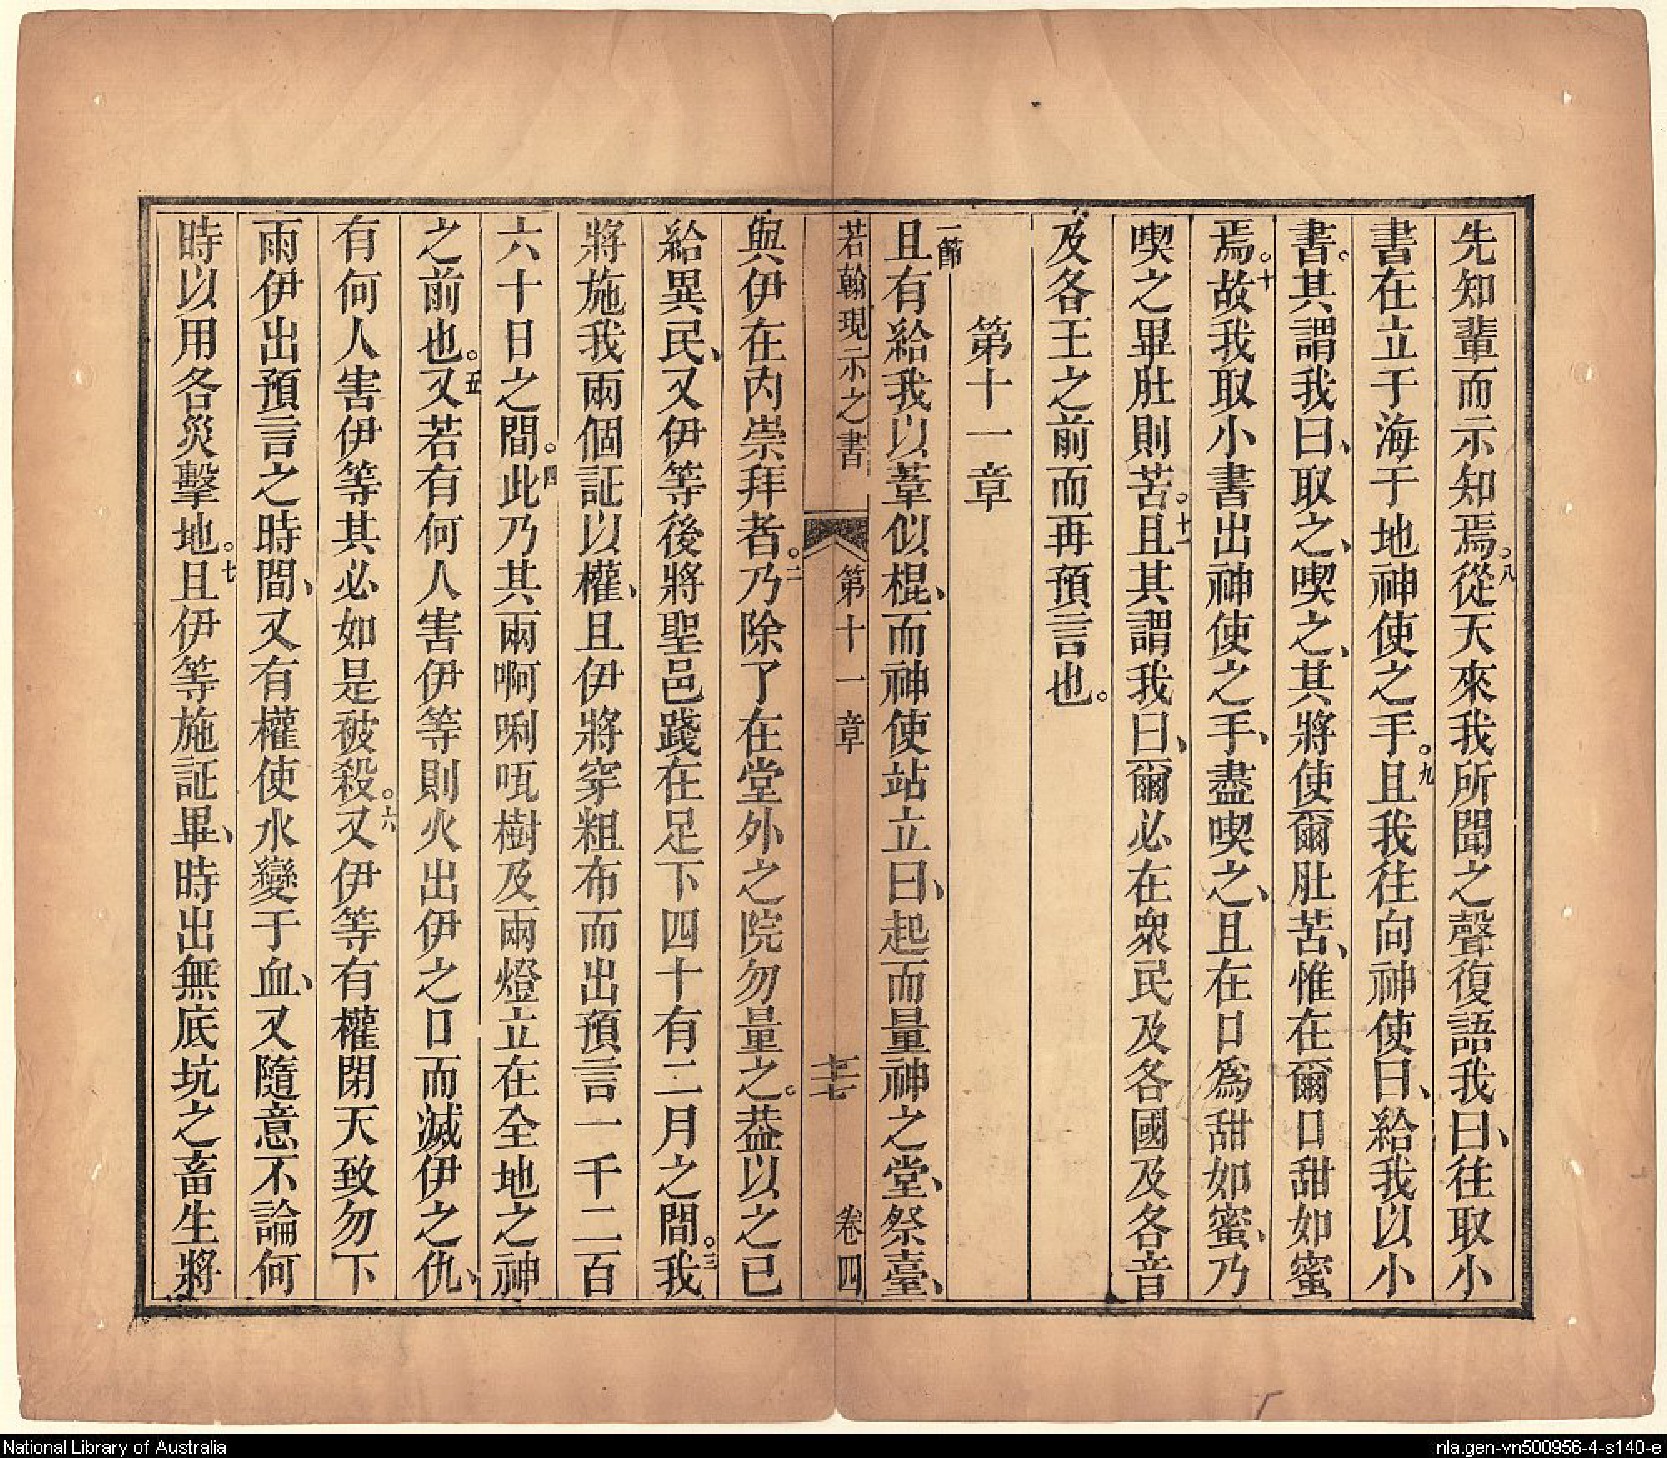 先知輩而示知焉。八從天來我所聞之聲復語我曰、往取小
書在立于海于地神使之手。九且我往向神使曰、給我以小
書。其謂我曰、取之、喫之、其將使爾肚苦、惟在爾口甜如蜜
焉。十故我取小書出神使之手、盡喫之、且在口為甜如蜜、乃
喫之畢肚則苦。十一且其謂我曰、爾必在衆民及各國及各音
及各王之前而再預言也。
第十一章
一節
且有給我以葦似棍、而神使站立曰、起而量神之堂、祭臺、
若翰現示之書 第十一章 卷四
與伊在內崇拜者。二乃除了在堂外之院勿量之。葢以之已
給異民、又伊等後將聖邑踐在足下四十有二月之間。三我
將施我兩個証以權、且伊將穿粗布而出預言一千二百
六十日之間。四此乃其兩啊唎咓樹及兩燈立在全地之神
之前也。五又若有何人害伊等則火出伊之口而滅伊之仇、
有何人害伊等其必如是被殺。六又伊等有權閉天致勿下
雨伊出預言之時間、又有權使水變于血、又隨意不論何
時以用各災擊地。七且伊等施証畢、時出無底坑之畜生將
National Library of Australia
nla.gen-vn500956-4-s140-e